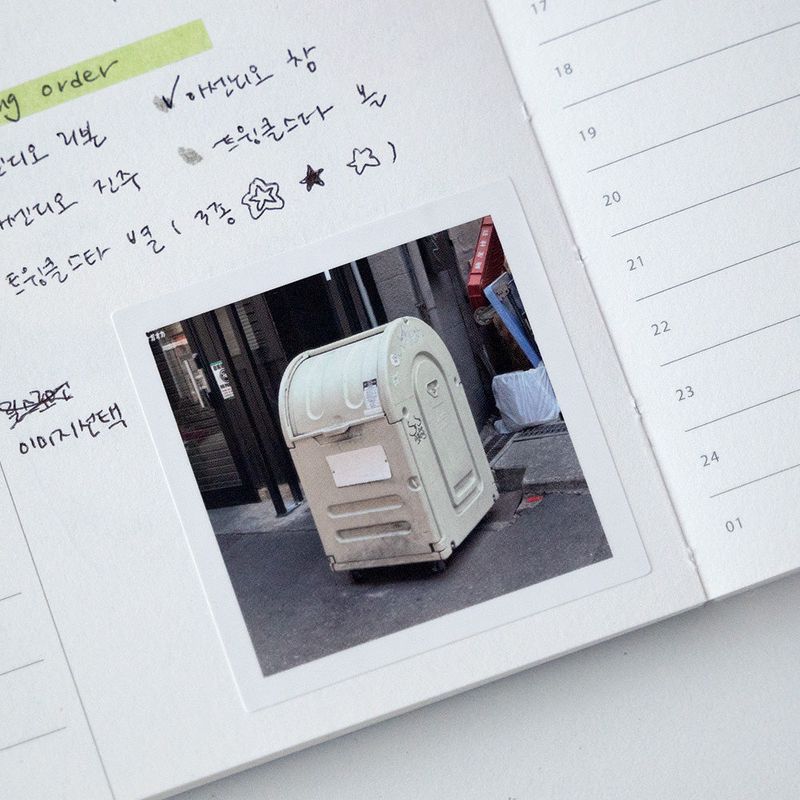 ng order
디오 리본 ✓ 아씬디오 참
씬디오 진주 트윙클스타 볼
트윙클스타 별 ( 3종 )
이미지선택
17
18
19
20
21
22
23
24
01